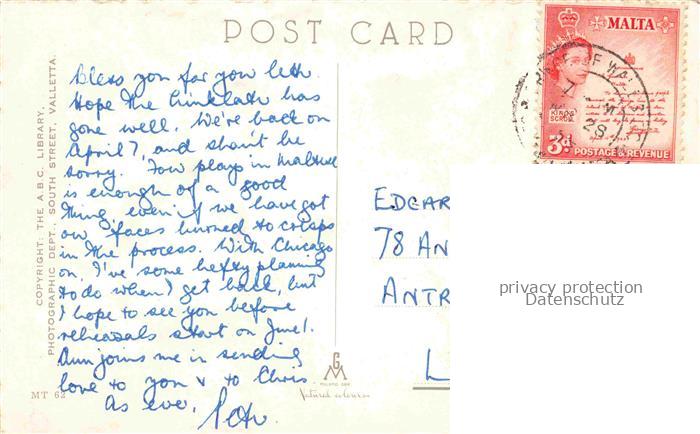 POST CARD
Bless you for your letter.
Hope the has
gone well. We're back on
April 7, and shan't be
sorry. Four plays in
is enough of a good
thing even if we have got
our faces burned to crisps
in the process. With Chicago
on, I've some hefty planning
to do when I get back, but
I hope to see you before
rehearsals start on June 1.
Ann joins me in sending
love to you & to Chris
As ever,
Peter
MT 62
COPYRIGHT: THE A.B.C. LIBRARY,
PHOTOGRAPHIC DEPT., SOUTH STREET, VALLETTA.
GM
MILANO
natural colours
MALTA
THE KING'S SCROLL
3d POSTAGE & REVENUE
EDGAR
78 AN
ANTR
L
privacy protection
Datenschutz